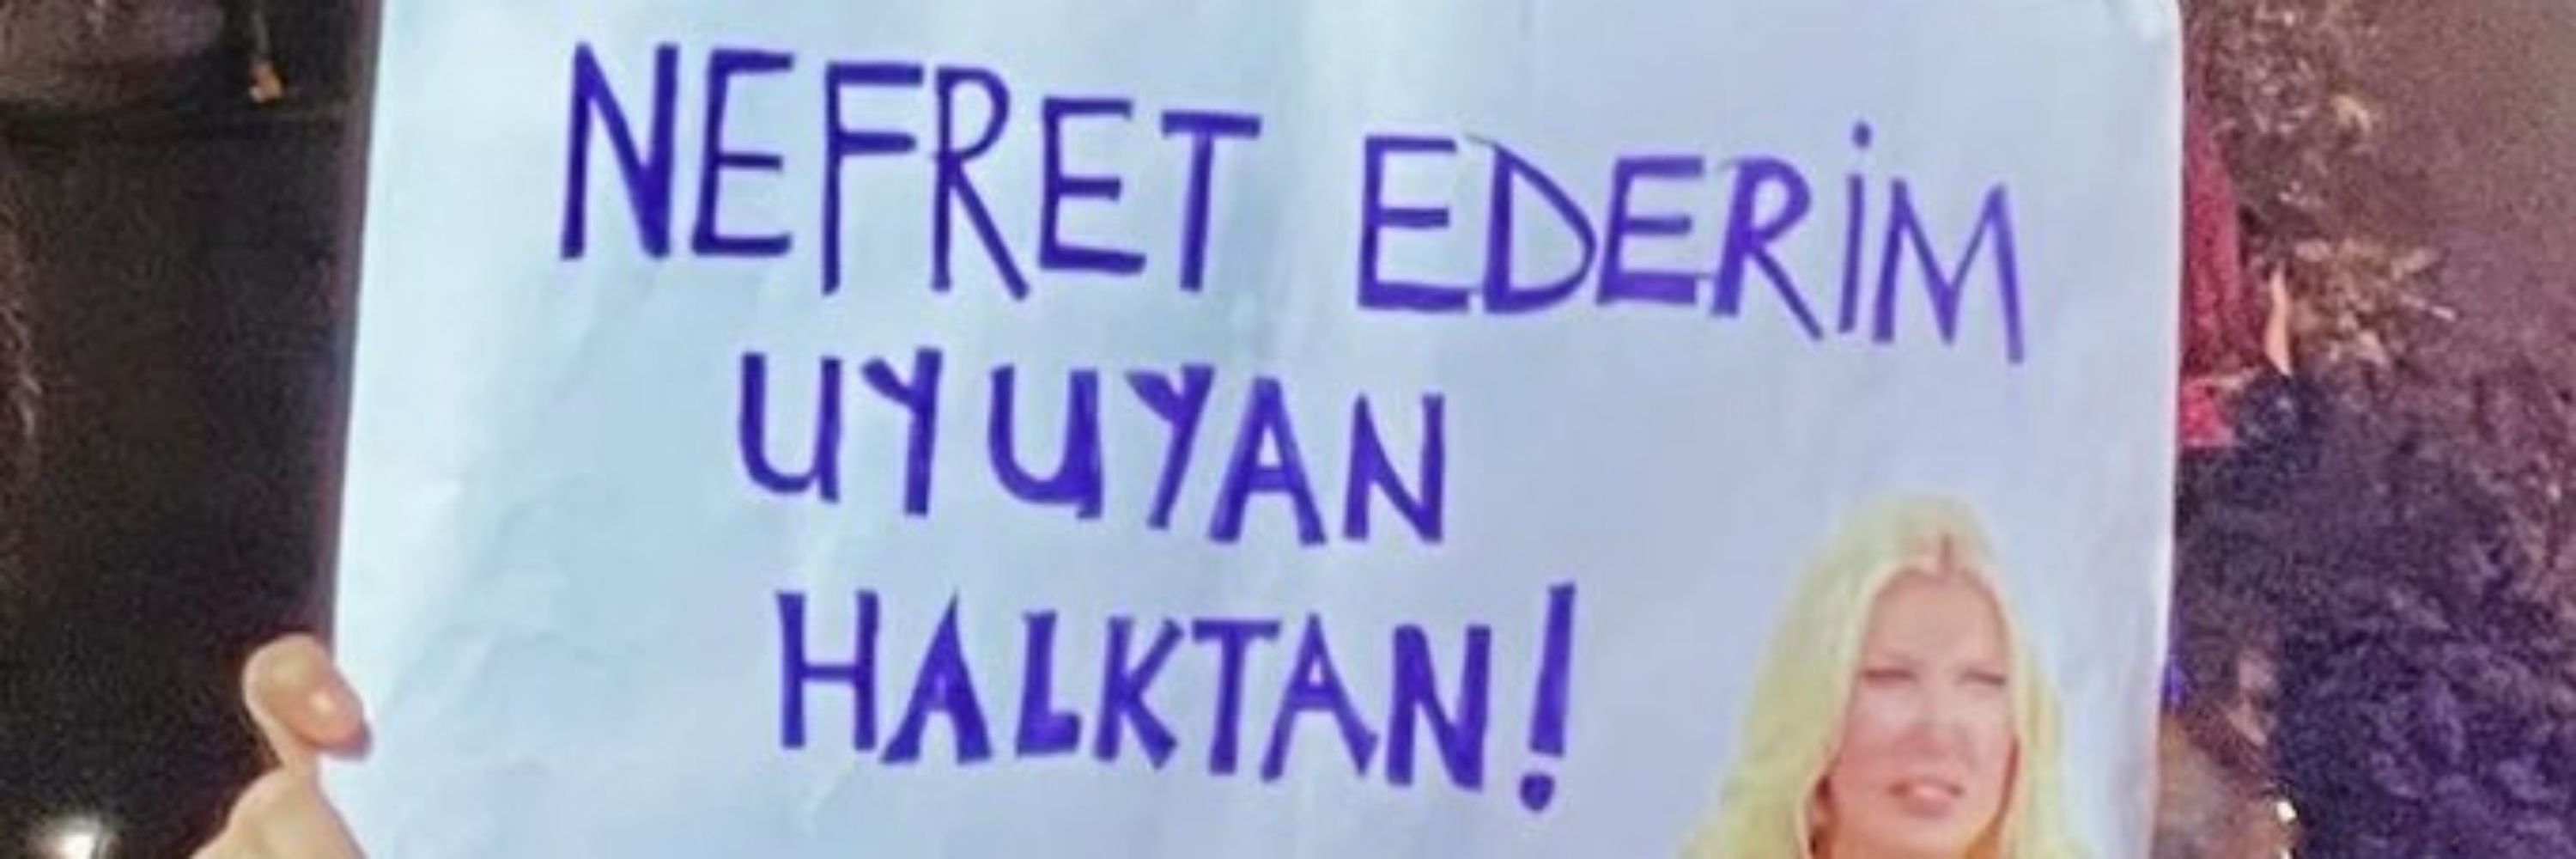 NEFRET EDERİM
UYUYAN
HALKTAN!